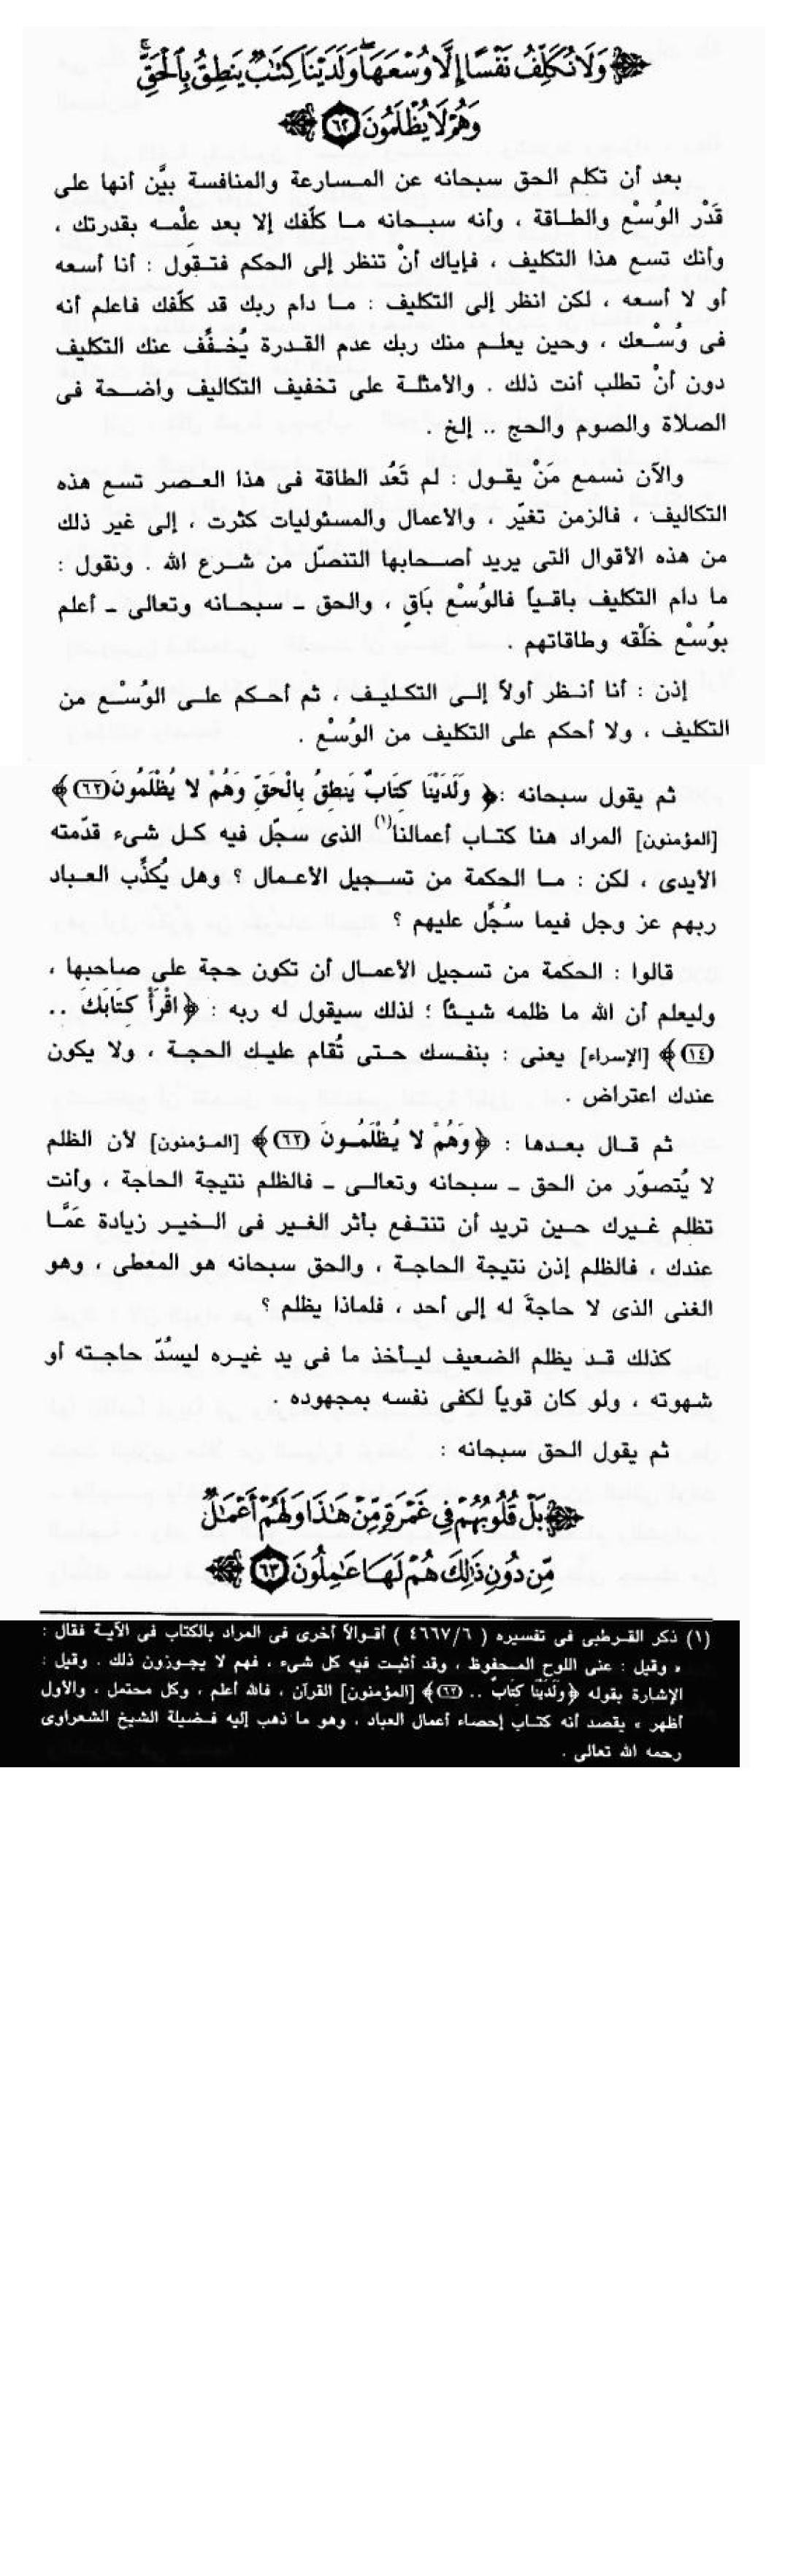 وَلَا نُكَلِّفُ نَفْسًا إِلَّا وُسْعَهَا وَلَدَيْنَا كِتَٰبٌ يَنطِقُ بِٱلْحَقِّ
وَهُمْ لَا يُظْلَمُونَ ٦٢
بعد أن تكلم الحق سبحانه عن المسارعة والمنافسة بيَّن أنها على
قَدْر الوُسْع والطاقة ، وأنه سبحانه ما كلّفك إلا بعد علْمه بقدرتك ،
وأنك تسع هذا التكليف ، فإياك أنْ تنظر إلى الحكم فتقول : أنا أسعه
أو لا أسعه ، لكن انظر إلى التكليف : ما دام ربك قد كلّفك فاعلم أنه
فى وُسْعك ، وحين يعلم منك ربك عدم القدرة يُخفَّف عنك التكليف
دون أنْ تطلب أنت ذلك . والأمثلة على تخفيف التكاليف واضحة فى
الصلاة والصوم والحج .. إلخ .
والآن نسمع مَنْ يقول : لم تَعُد الطاقة فى هذا العصر تسع هذه
التكاليف ، فالزمن تغيّر ، والأعمال والمسئوليات كثرت ، إلى غير ذلك
من هذه الأقوال التى يريد أصحابها التنصّل من شرع الله . ونقول :
ما دام التكليف باقياً فالوُسْع بَاقٍ ، والحق ـ سبحانه وتعالى ـ أعلم
بوُسْع خَلْقه وطاقاتهم .
إذن : أنا أنظر أولاً إلى التكليف ، ثم أحكم على الوُسْع من
التكليف ، ولا أحكم على التكليف من الوُسْع .
ثم يقول سبحانه : ﴿ وَلَدَيْنَا كِتَابٌ يَنطِقُ بِالْحَقِّ وَهُمْ لا يُظْلَمُونَ (٦٢) ﴾
[المؤمنون] المراد هنا كتاب أعمالنا(١) الذى سجّل فيه كل شىء قدّمته
الأيدى ، لكن : ما الحكمة من تسجيل الأعمال ؟ وهل يُكذِّب العباد
ربهم عز وجل فيما سُجِّل عليهم ؟
قالوا : الحكمة من تسجيل الأعمال أن تكون حجة على صاحبها ،
وليعلم أن الله ما ظلمه شيئاً ؛ لذلك سيقول له ربه : ﴿ اقْرَأْ كِتَابَكَ ..
(١٤) ﴾ [الإسراء] يعنى : بنفسك حتى تُقام عليك الحجة ، ولا يكون
عندك اعتراض .
ثم قال بعدها : ﴿ وَهُمْ لا يُظْلَمُونَ (٦٢) ﴾ [المؤمنون] لأن الظلم
لا يُتصوّر من الحق ـ سبحانه وتعالى ـ فالظلم نتيجة الحاجة ، وأنت
تظلم غيرك حين تريد أن تنتفع بأثر الغير فى الخير زيادة عَمَّا
عندك ، فالظلم إذن نتيجة الحاجة ، والحق سبحانه هو المعطى ، وهو
الغنى الذى لا حاجةَ له إلى أحد ، فلماذا يظلم ؟
كذلك قد يظلم الضعيف ليأخذ ما فى يد غيره ليسُدّ حاجته أو
شهوته ، ولو كان قوياً لكفى نفسه بمجهوده .
ثم يقول الحق سبحانه :
بَلْ قُلُوبُهُمْ فِى غَمْرَةٍ مِّنْ هَٰذَا وَلَهُمْ أَعْمَٰلٌ
مِّن دُونِ ذَٰلِكَ هُمْ لَهَا عَٰمِلُونَ ٦٣
(١) ذكر القرطبى فى تفسيره ( ٤٦٦٧/٦ ) أقوالاً أخرى فى المراد بالكتاب فى الآية فقال :
« وقيل : عنى اللوح المحفوظ ، وقد أثبت فيه كل شىء ، فهم لا يجوزون ذلك . وقيل :
الإشارة بقوله ﴿ وَلَدَيْنَا كِتَابٌ .. (٦٢) ﴾ [المؤمنون] القرآن ، فالله أعلم ، وكل محتمل ، والأول
أظهر » يقصد أنه كتاب إحصاء أعمال العباد ، وهو ما ذهب إليه فضيلة الشيخ الشعراوى
رحمه الله تعالى .